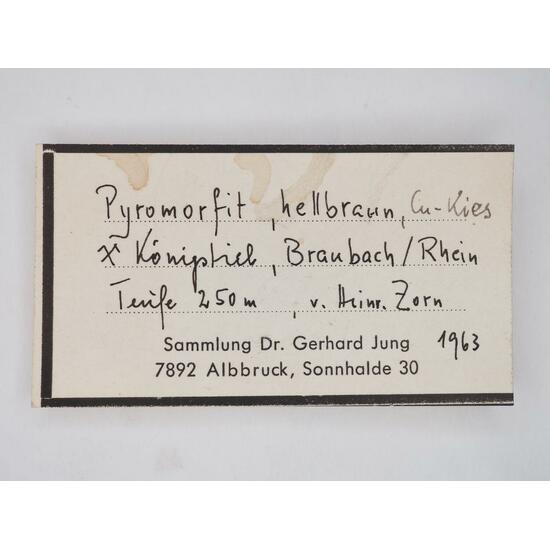 Pyromorfit, hellbraun, Cu-Kies
X Königstiel, Braubach/Rhein
Teufe 250m, v. Heinr. Zorn
Sammlung Dr. Gerhard Jung 1963
7892 Albbruck, Sonnhalde 30